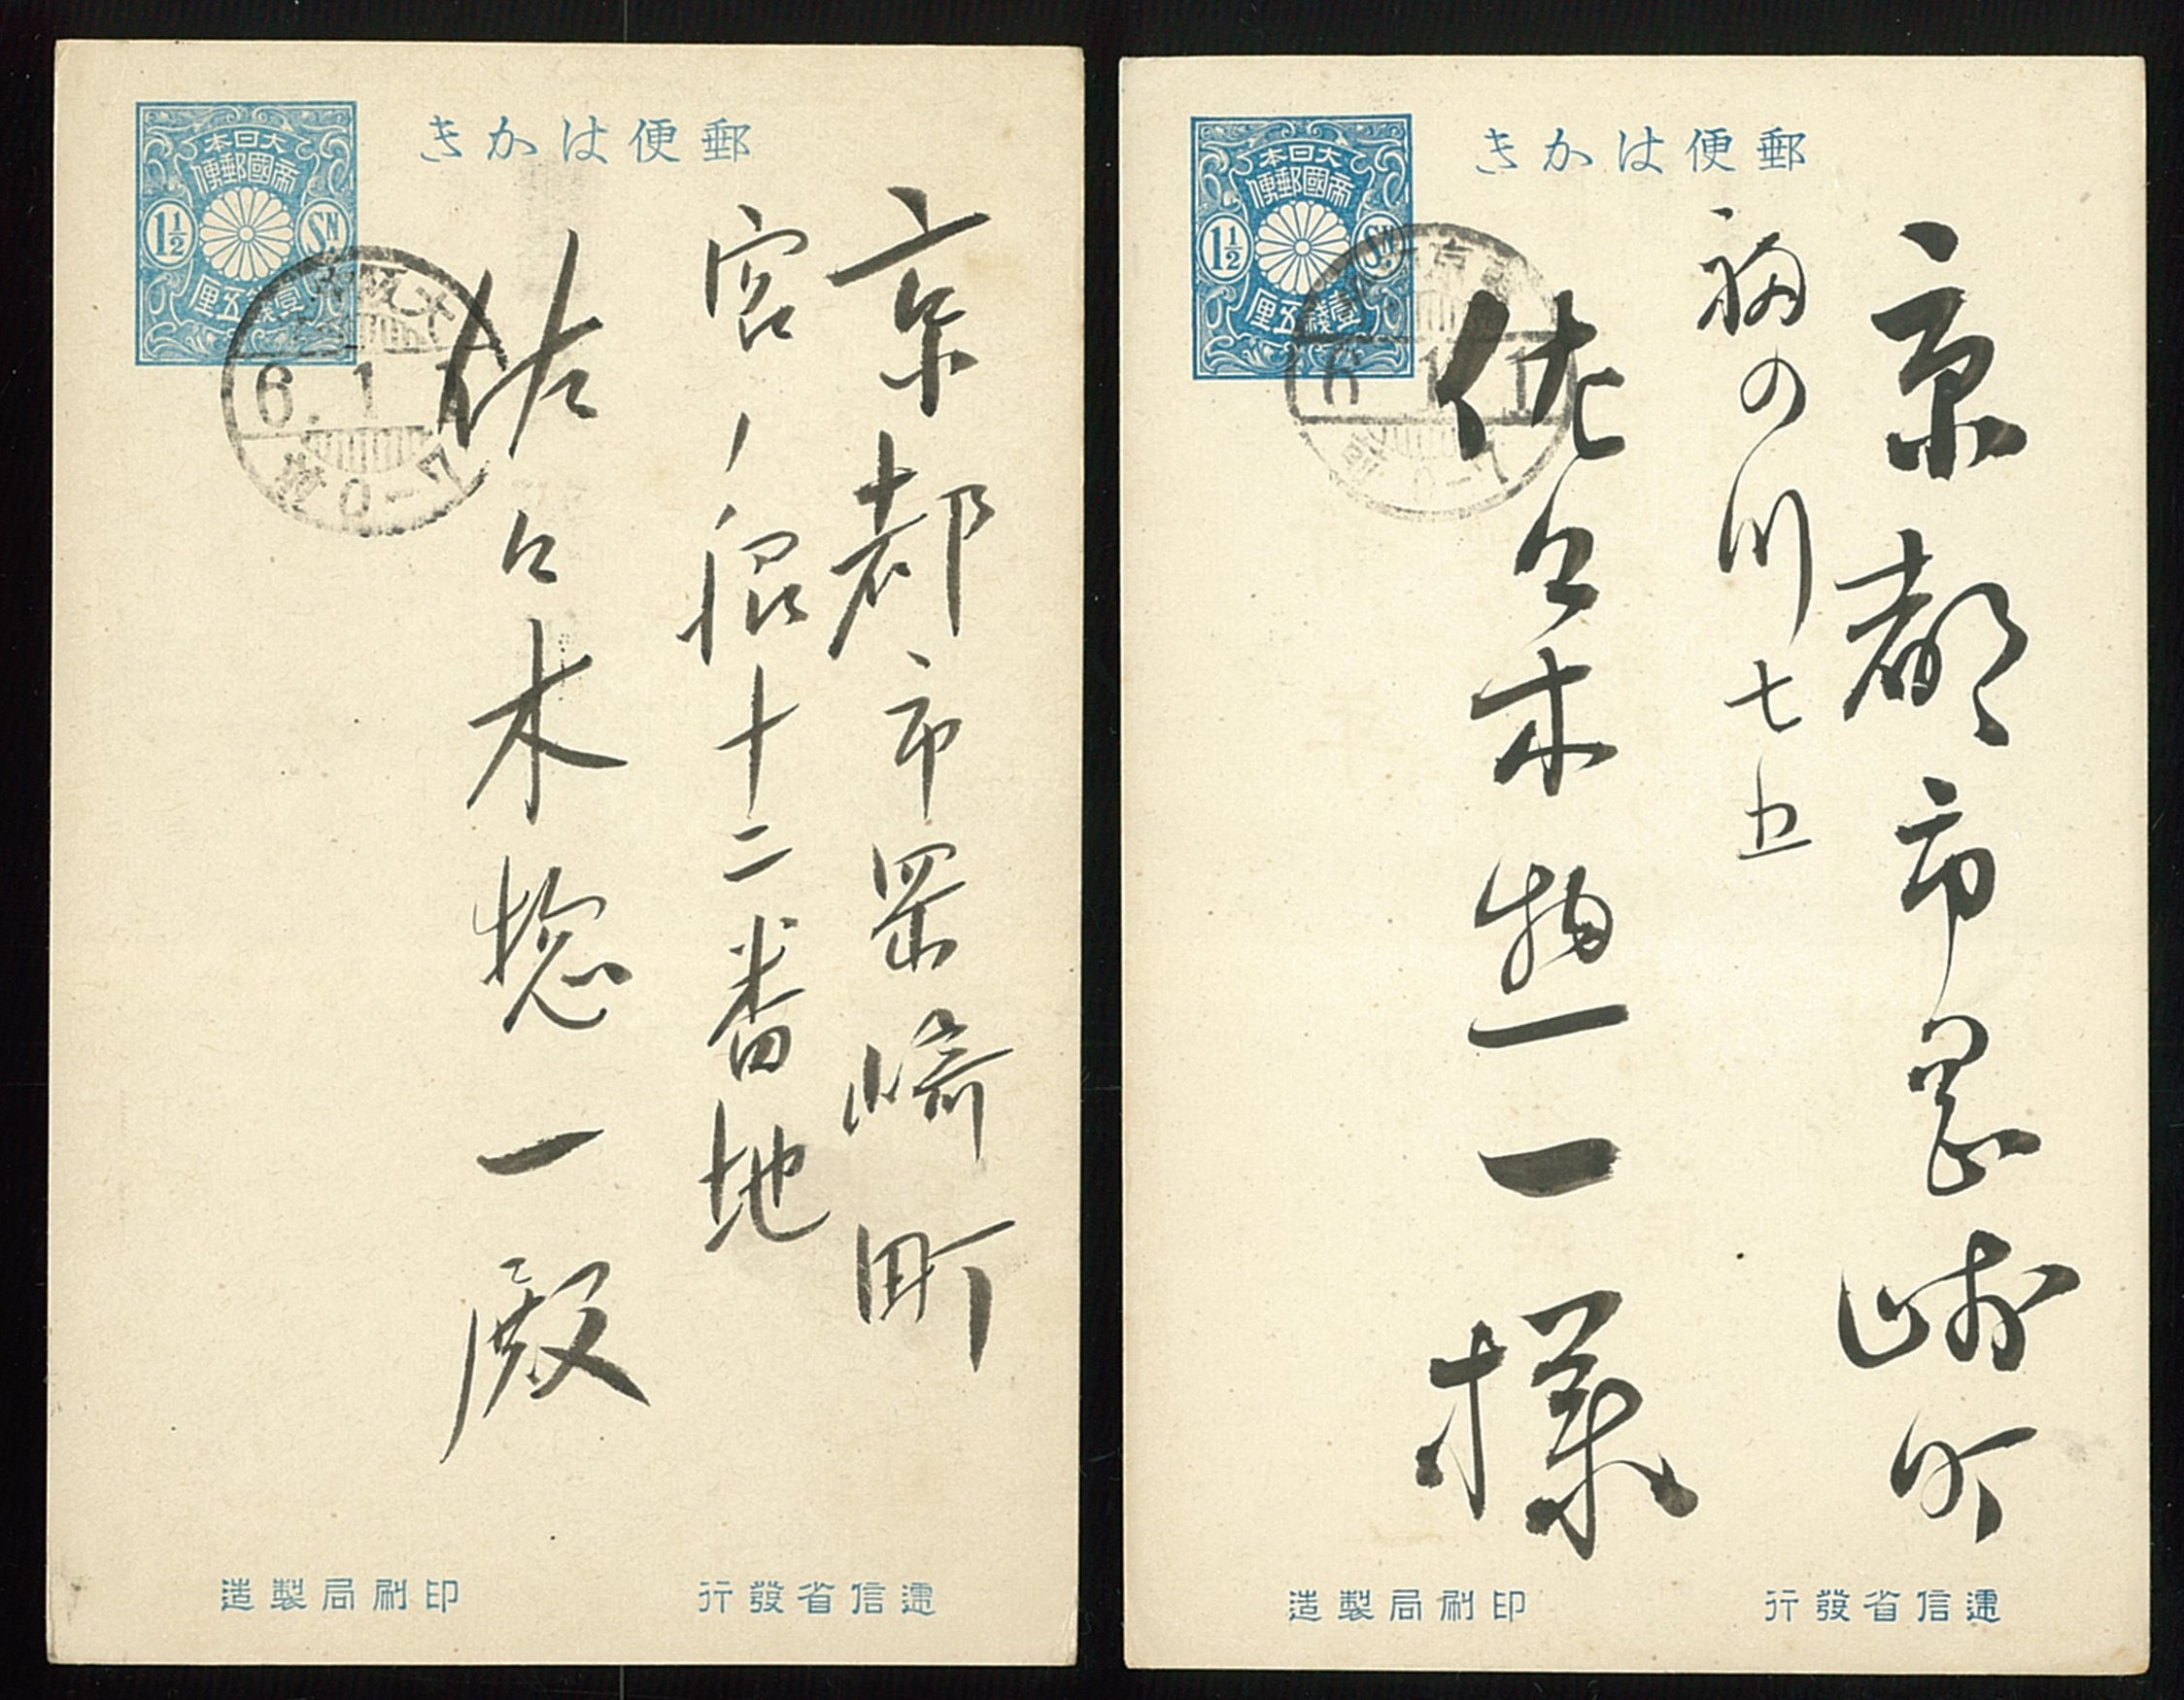 郵便はかき
大日本
帝國郵便
1½
SN
壹錢五厘
大阪
6.1
0-7
京都市岡崎町
宮ノ脇十二番地
佐々木惣一殿
逓信省發行
印刷局製造
郵便はかき
大日本
帝國郵便
1½
SN
壹錢五厘
京
6.1.1
京都市岡崎町
福の川七五
佐々木惣一様
逓信省發行
印刷局製造